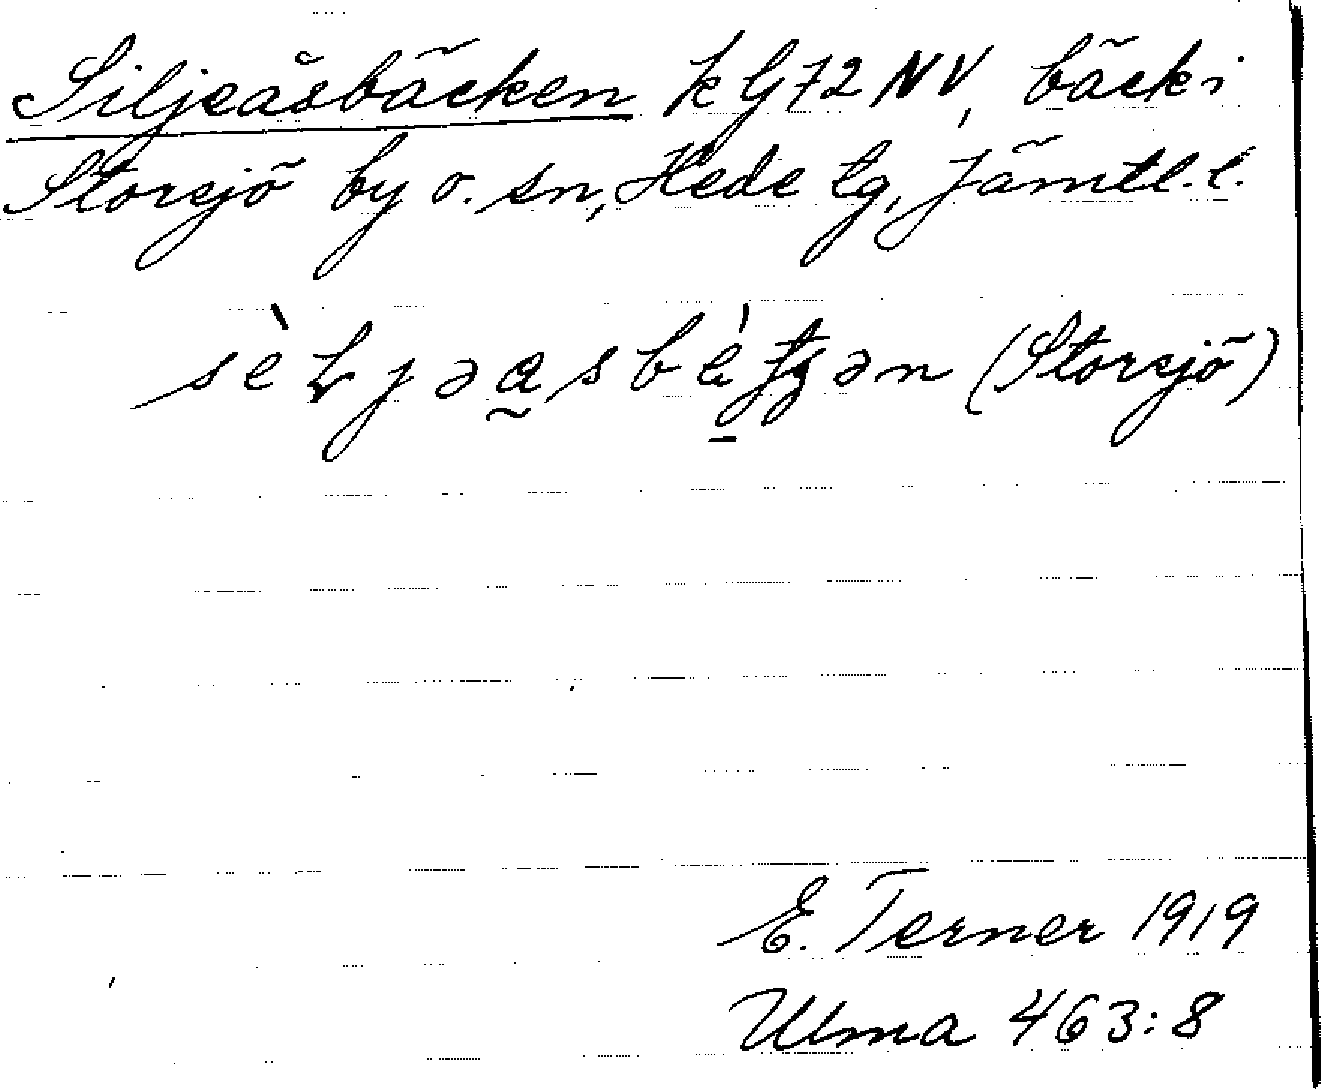 Siljeåsbäcken kG72NV, bäck i
Storsjö by o. sn, Hede tg, Jämtl. l.
(Storsjö)
E. Terner 1919
Ulma 463:8